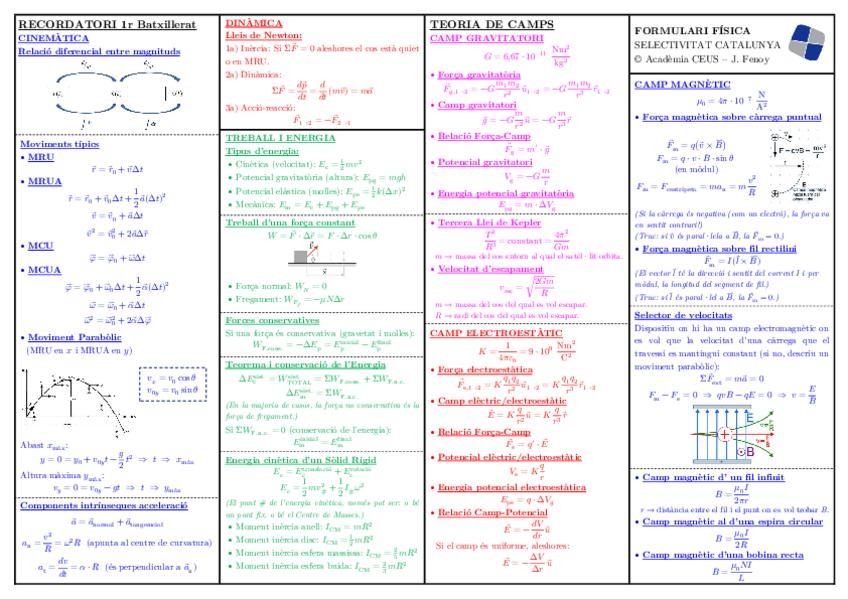 RECORDATORI 1r Batxillerat
CINEMÀTICA
Relació diferencial entre magnituds
Moviments típics
• MRU
r⃗ = r⃗₀ + v⃗Δt
• MRUA
r⃗ = r⃗₀ + v⃗₀Δt + 1/2 a⃗(Δt)²
v⃗ = v⃗₀ + a⃗Δt
v⃗² = v⃗₀² + 2a⃗Δr⃗
• MCU
φ⃗ = φ⃗₀ + ω⃗Δt
• MCUA
φ⃗ = φ⃗₀ + ω⃗₀Δt + 1/2 α⃗(Δt)²
ω⃗ = ω⃗₀ + α⃗Δt
ω⃗² = ω⃗₀² + 2α⃗Δφ⃗
• Moviment Parabòlic
(MRU en x i MRUA en y)
vₓ = v₀ cos θ
v₀y = v₀ sin θ
Abast xmàx:
y = 0 = y₀ + v₀y t − g/2 t² ⇒ t ⇒ xmàx
Altura màxima ymàx:
vy = 0 = v₀y − gt ⇒ t ⇒ ymàx
Components intrínseques acceleració
a⃗ = a⃗normal + a⃗tangencial
aₙ = v²/R = ω²R (apunta al centre de curvatura)
aₜ = dv/dt = α · R (és perpendicular a a⃗ₙ)
DINÀMICA
Lleis de Newton:
1a) Inèrcia: Si ΣF⃗ = 0 aleshores el cos està quiet
o en MRU.
2a) Dinàmica:
ΣF⃗ = dp⃗/dt = d/dt (mv⃗) = ma⃗
3a) Acció-reacció:
F⃗₁→₂ = −F⃗₂→₁
TREBALL I ENERGIA
Tipus d'energia:
• Cinètica (velocitat): Ec = 1/2 mv²
• Potencial gravitatòria (altura): Epg = mgh
• Potencial elàstica (molles): Epe = 1/2 k(Δx)²
• Mecànica: Em = Ec + Epg + Epe
Treball d'una força constant
W = F⃗ · Δr⃗ = F · Δr · cos θ
• Força normal: WN = 0
• Fregament: WFf = −μNΔr
Forces conservatives
Si una força és conservativa (gravetat i molles):
WF.cons. = −ΔEp = Epinicial − Epfinal
Teorema i conservació de l'Energia
ΔEcsist. = WTOTAL = ΣWF.cons. + ΣWF.n.c.
ΔEmsist. = ΣWF.n.c.
(En la majoria de casos, la força no conservativa és la
força de fregament.)
Si ΣWF.n.c. = 0 (conservació de l'energia):
Eminicial = Emfinal
Energia cinètica d'un Sòlid Rígid
Ec = Ectranslació + Ecrotació
Ec = 1/2 mv² + 1/2 Iω²
• Moment inèrcia anell: ICM = mR²
• Moment inèrcia disc: ICM = 1/2 mR²
• Moment inèrcia esfera massissa: ICM = 2/5 mR²
• Moment inèrcia esfera buida: ICM = 2/3 mR²
TEORIA DE CAMPS
CAMP GRAVITATORI
G = 6,67 · 10⁻¹¹ Nm²/kg²
• Força gravitatòria
• Camp gravitatori
g⃗ = −G m/r² u⃗ = −G m/r³ r⃗
• Relació Força-Camp
F⃗g = m' · g⃗
• Potencial gravitatori
Vg = −G m/r
• Energia potencial gravitatòria
Epg = m · ΔVg
• Tercera Llei de Kepler
T²/R³ = constant = 4π²/Gm
m → massa del cos entorn al qual el satèl·lit orbita.
• Velocitat d'escapament
vesc = √(2Gm/R)
m → massa del cos del qual es vol escapar.
R → radi del cos del qual es vol escapar.
CAMP ELECTROESTÀTIC
K = 1/4πε₀ = 9 · 10⁹ Nm²/C²
• Força electroestàtica
• Camp elèctric/electroestàtic
E⃗ = K q/r² u⃗ = K q/r³ r⃗
• Relació Força-Camp
F⃗e = q' · E⃗
• Potencial elèctric/electroestàtic
Ve = K q/r
• Energia potencial electroestàtica
Epe = q · ΔVe
• Relació Camp-Potencial
E⃗ = − dV/dr u⃗
Si el camp és uniforme, aleshores:
E⃗ = − ΔV/Δr u⃗
FORMULARI FÍSICA
SELECTIVITAT CATALUNYA
© Acadèmia CEUS – J. Fenoy
CAMP MAGNÈTIC
μ₀ = 4π · 10⁻⁷ N/A²
• Força magnètica sobre càrrega puntual
F⃗m = q(v⃗ × B⃗)
Fm = q · v · B · sin θ
(en mòdul)
Fm = Fcentrípeta = maₙ = m v²/R
(Si la càrrega és negativa (com un electró), la força va
en sentit contrari!)
(Truc: si v⃗ és paral·lela a B⃗, la Fm = 0.)
• Força magnètica sobre fil rectilini
F⃗m = I(l⃗ × B⃗)
(El vector l⃗ té la direcció i sentit del corrent I i per
mòdul, la longitud del segment de fil.)
(Truc: si l⃗ és paral·lel a B⃗, la Fm = 0.)
Selector de velocitats
Dispositiu on hi ha un camp electromagnètic on
es vol que la velocitat d'una càrrega que el
travessi es mantingui constant (si no, descriu un
moviment parabòlic):
ΣF⃗ext = ma⃗ = 0
Fm − Fe = 0 ⇒ qvB − qE = 0 ⇒ v = E/B
• Camp magnètic d'un fil infinit
B = μ₀I/2πr
r → distància entre el fil i el punt on es vol trobar B.
• Camp magnètic al d'una espira circular
B = μ₀I/2R
• Camp magnètic d'una bobina recta
B = μ₀NI/L